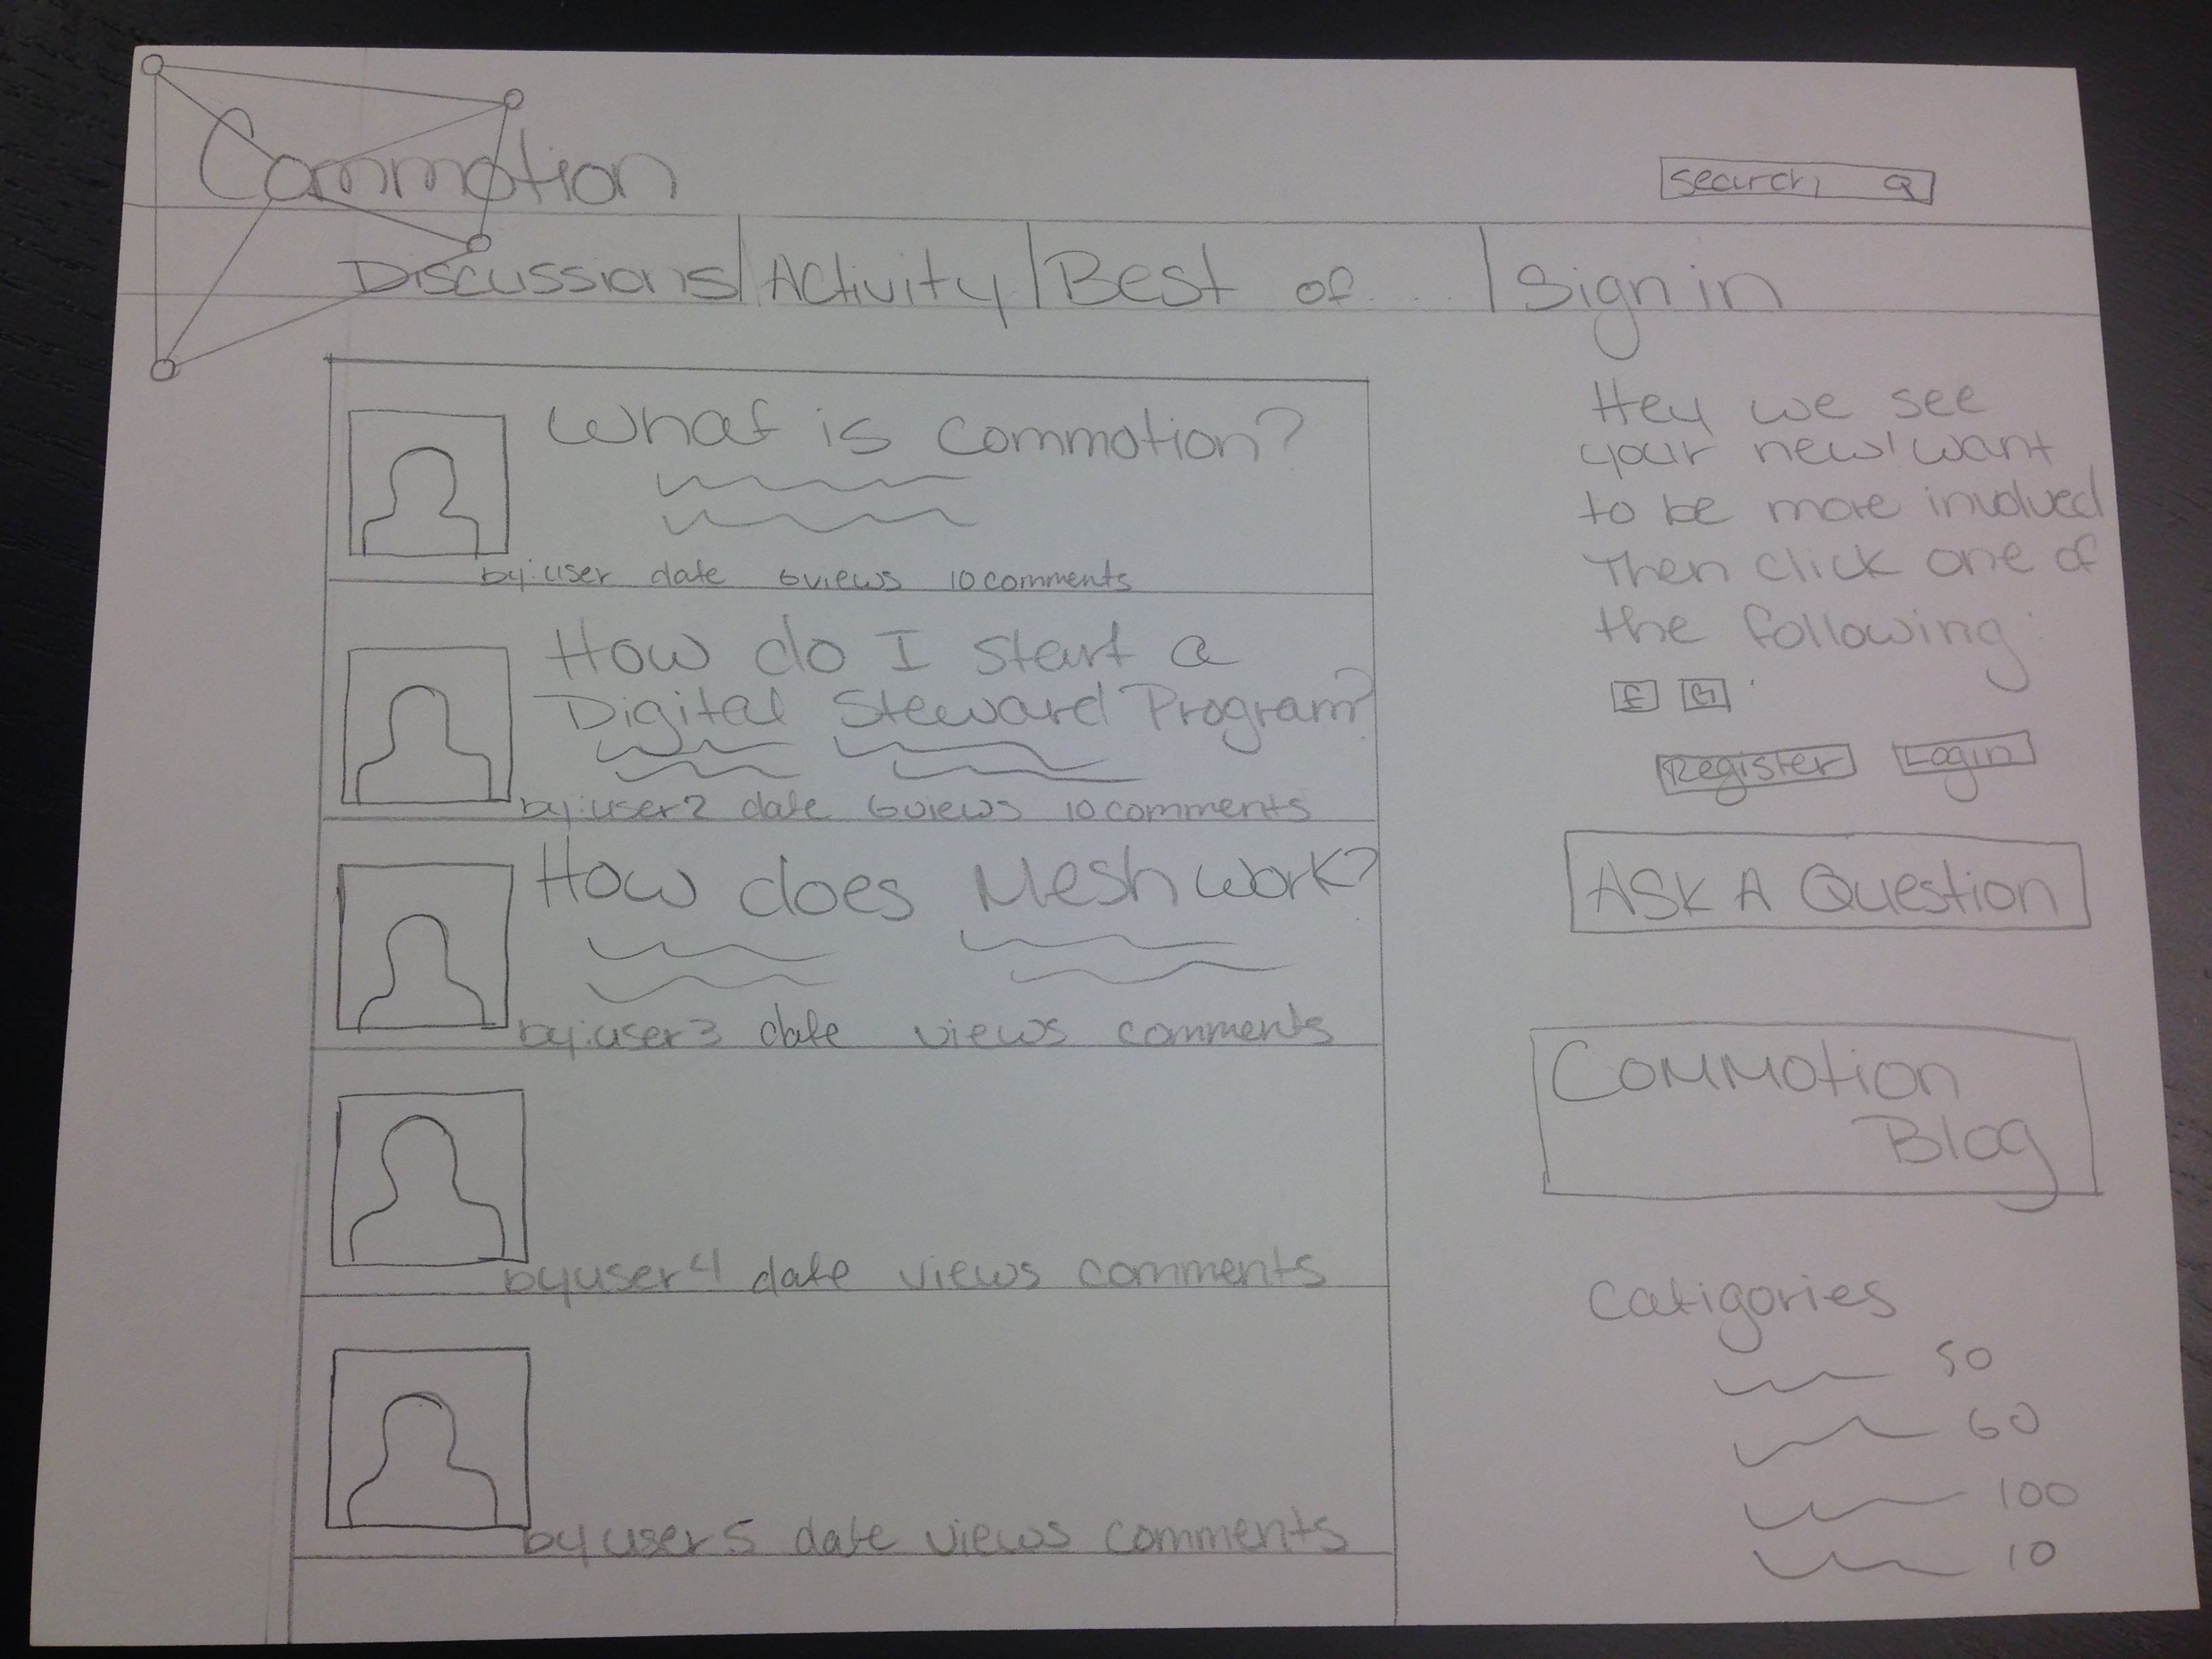 Commotion
search
Discussions | Activity | Best of.... | Sign in
What is Commotion?
by:user date 6views 10comments
How do I start a
Digital Steward Program?
by:user2 date 6views 10comments
How does Mesh work?
by:user3 date views comments
by user4 date views comments
by user5 date views comments
Hey we see
your new! want
to be more involved
Then click one of
the following:
Register Login
ASK A Question
Commotion
Blog
Catigories
50
60
100
10